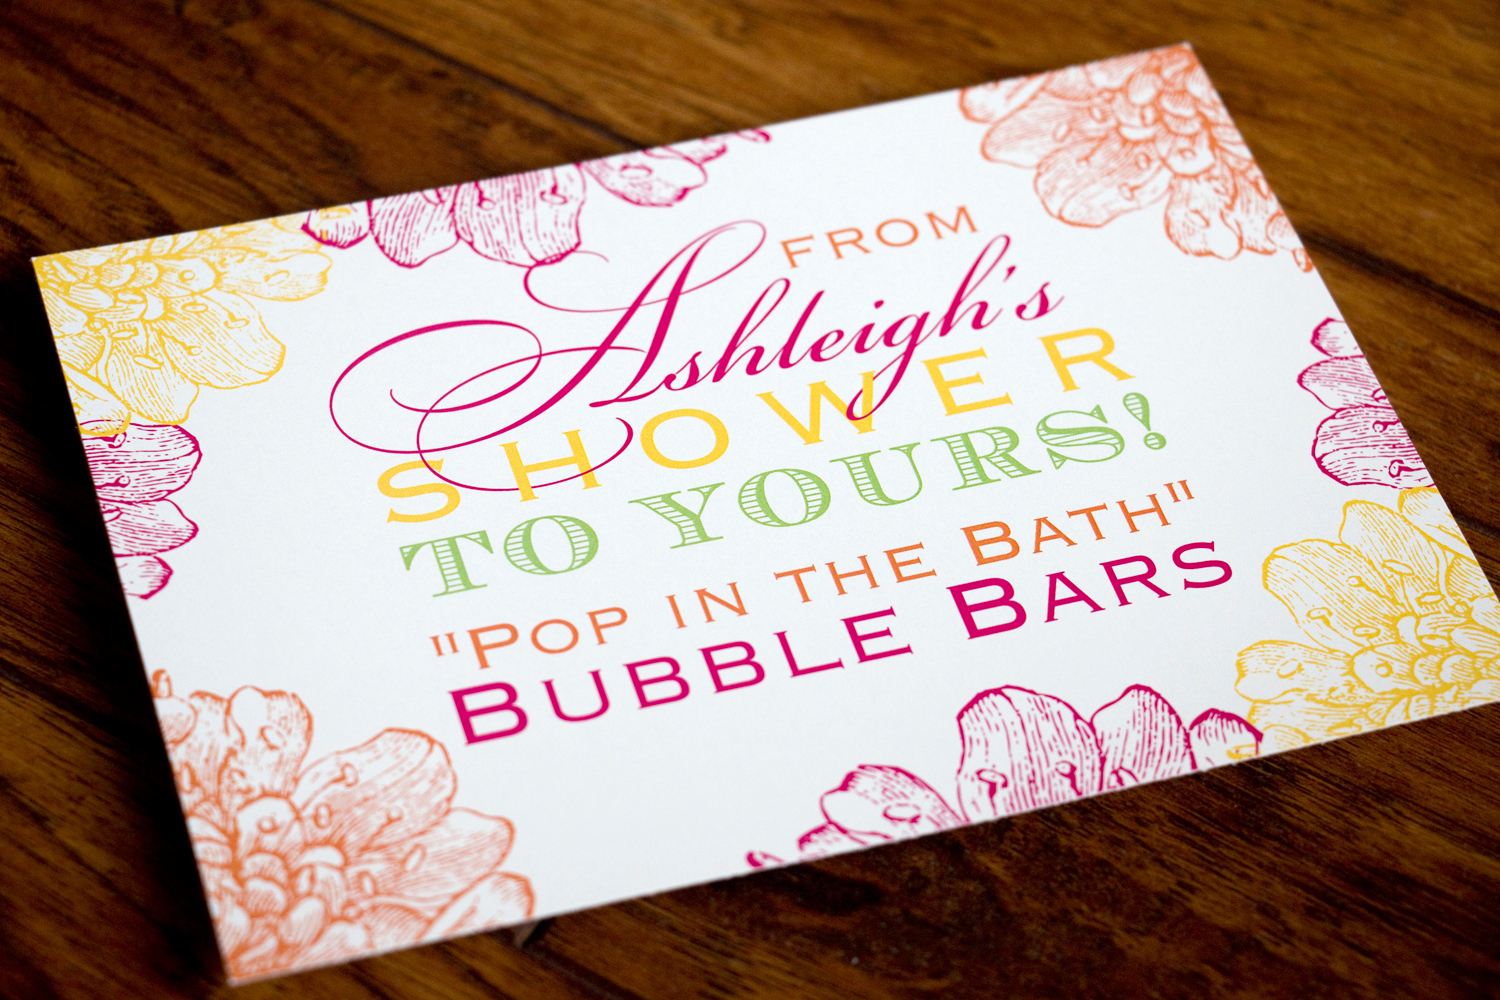 FROM
Ashleigh's
SHOWER
TO YOURS!
"POP IN THE BATH"
BUBBLE BARS